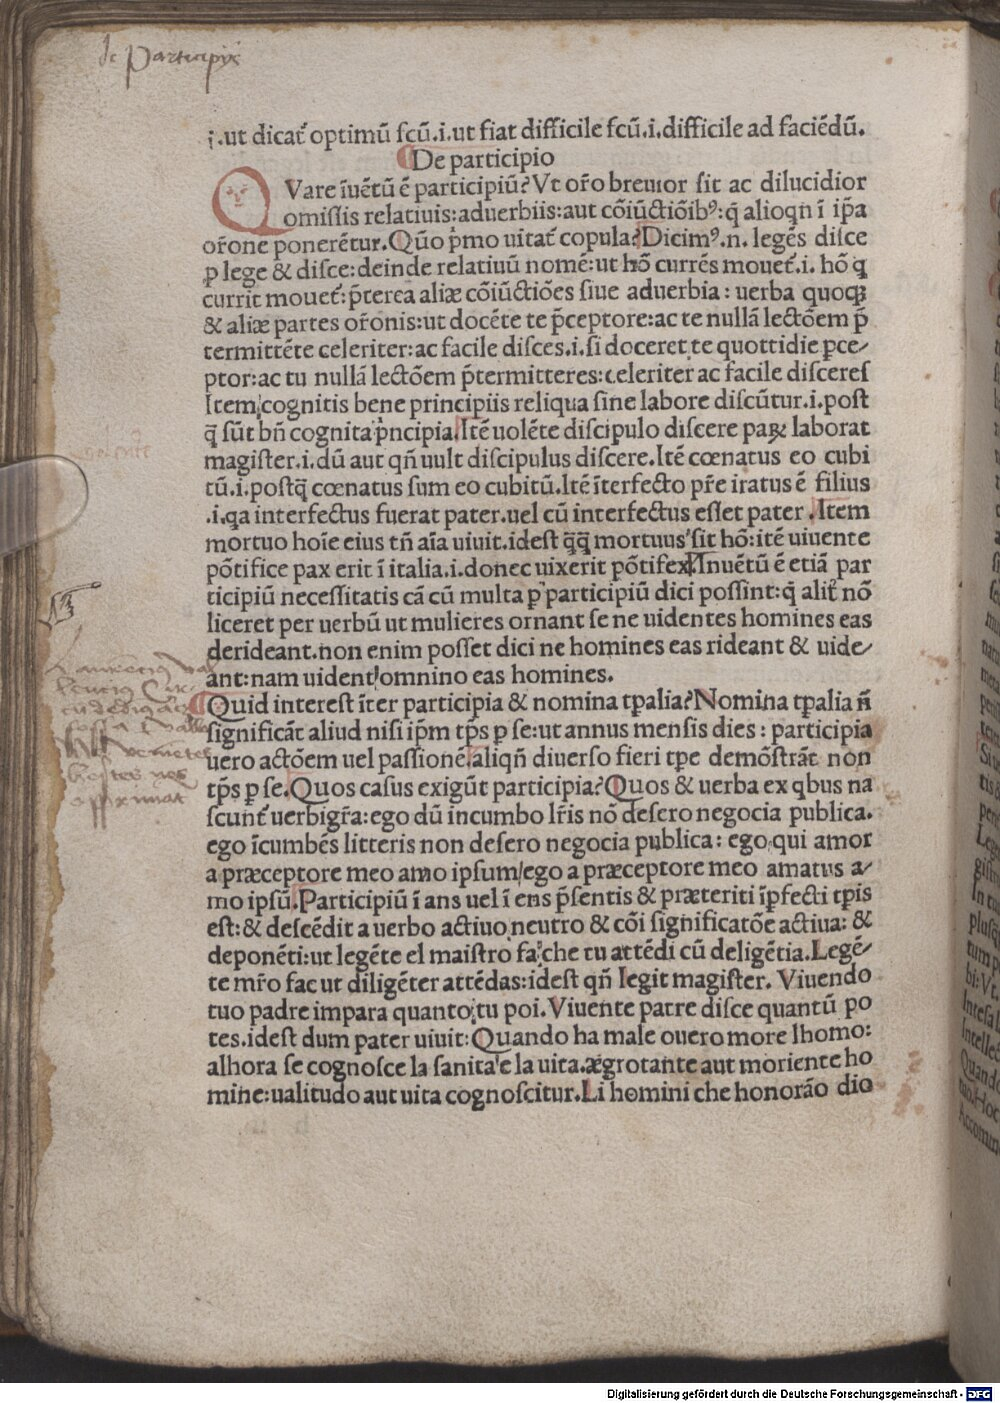 de Participijs
i.ut dicat᷑ optimū fcū.i.ut fiat difficile fcū.i.difficile ad faciēdū.
De participio
QVare īuētū ē participiū? Vt or̄o breuior sit ac dilucidior
omissis relatiuis:aduerbiis:aut cōiūctiōibꝰ:q̄ alioqn ī ip̄a
or̄one ponerētur.Quō p̄mo uitat᷑ copula? Dicimꝰ.n. legēs disce
ꝓ lege & disce:deinde relatiuū nomē:ut hō currēs mouet᷑.i. hō q
currit mouet᷑:p̄terea aliæ cōiūctiōes siue aduerbia: uerba quoqꝫ
& aliæ partes or̄onis:ut docēte te p̄ceptore:ac te nullā lectōem p̄
termittēte celeriter:ac facile disces.i.si doceret te quottidie p̄ce/
ptor:ac tu nullā lectōem p̄termitteres:celeriter ac facile disceres
Item cognitis bene principiis reliqua sine labore discūtur.i.post
q̄ sūt bn̄ cognita p̄ncipia.Itē uolēte discipulo discere paꝝ laborat
magister.i.dū aut qn̄ uult discipulus discere.Itē cœnatus eo cubi
tū.i.postq̄ cœnatus sum eo cubitū.Itē īterfecto pr̄e iratus ē filius
.i.qa interfectus fuerat pater.uel cū interfectus esset pater .Item
mortuo hoīe eius tn̄ aīa uiuit.idest q̄q̄ mortuus sit hō:itē uiuente
pōtifice pax erit ī italia.i.donec uixerit pōtifex.Inuētū ē etiā par
ticipiū necessitatis cā cū multa ꝑ participiū dici possint:q̄ alit᷑ nō
liceret per uerbū ut mulieres ornant se ne uidentes homines eas
derideant.non enim posset dici ne homines eas rideant & uide/
ant:nam uident omnino eas homines.
Quid interest īter participia & nomina tꝑalia? Nomina tꝑalia n̄
significāt aliud nisi ip̄m tp̄s ꝑ se:ut annus mensis dies: participia
uero actōem uel passionē aliqn̄ diuerso fieri tꝑe demōstrāt non
tp̄s ꝑ se.Quos casus exigūt participia? Quos & uerba ex qbus na
scunt᷑ uerbigr̄a:ego dū incumbo lr̄is nō desero negocia publica.
ego īcumbēs litteris non desero negocia publica: ego qui amor
a præceptore meo amo ipsum/ego a præceptore meo amatus a/
mo ipsū.Participiū ī ans uel ī ens p̄sentis & præteriti īꝑfecti tꝑis
est:& descēdit a uerbo actiuo neutro & cōi significatōe actiua: &
deponēti:ut legēte el maistro fa che tu attēdi cū deligētia.Legē/
te mr̄o fac ut diligēter attēdas:idest qn̄ legit magister. Viuendo
tuo padre impara quanto tu poi.Viuente patre disce quantū po
tes.idest dum pater uiuit:Quando ha male ouero more lhomo:
alhora se cognosce la sanita e la uita.ægrotante aut moriente ho
mine:ualitudo aut uita cognoscitur.Li homini che honorāo dio
Digitalisierung gefördert durch die Deutsche Forschungsgemeinschaft - DFG